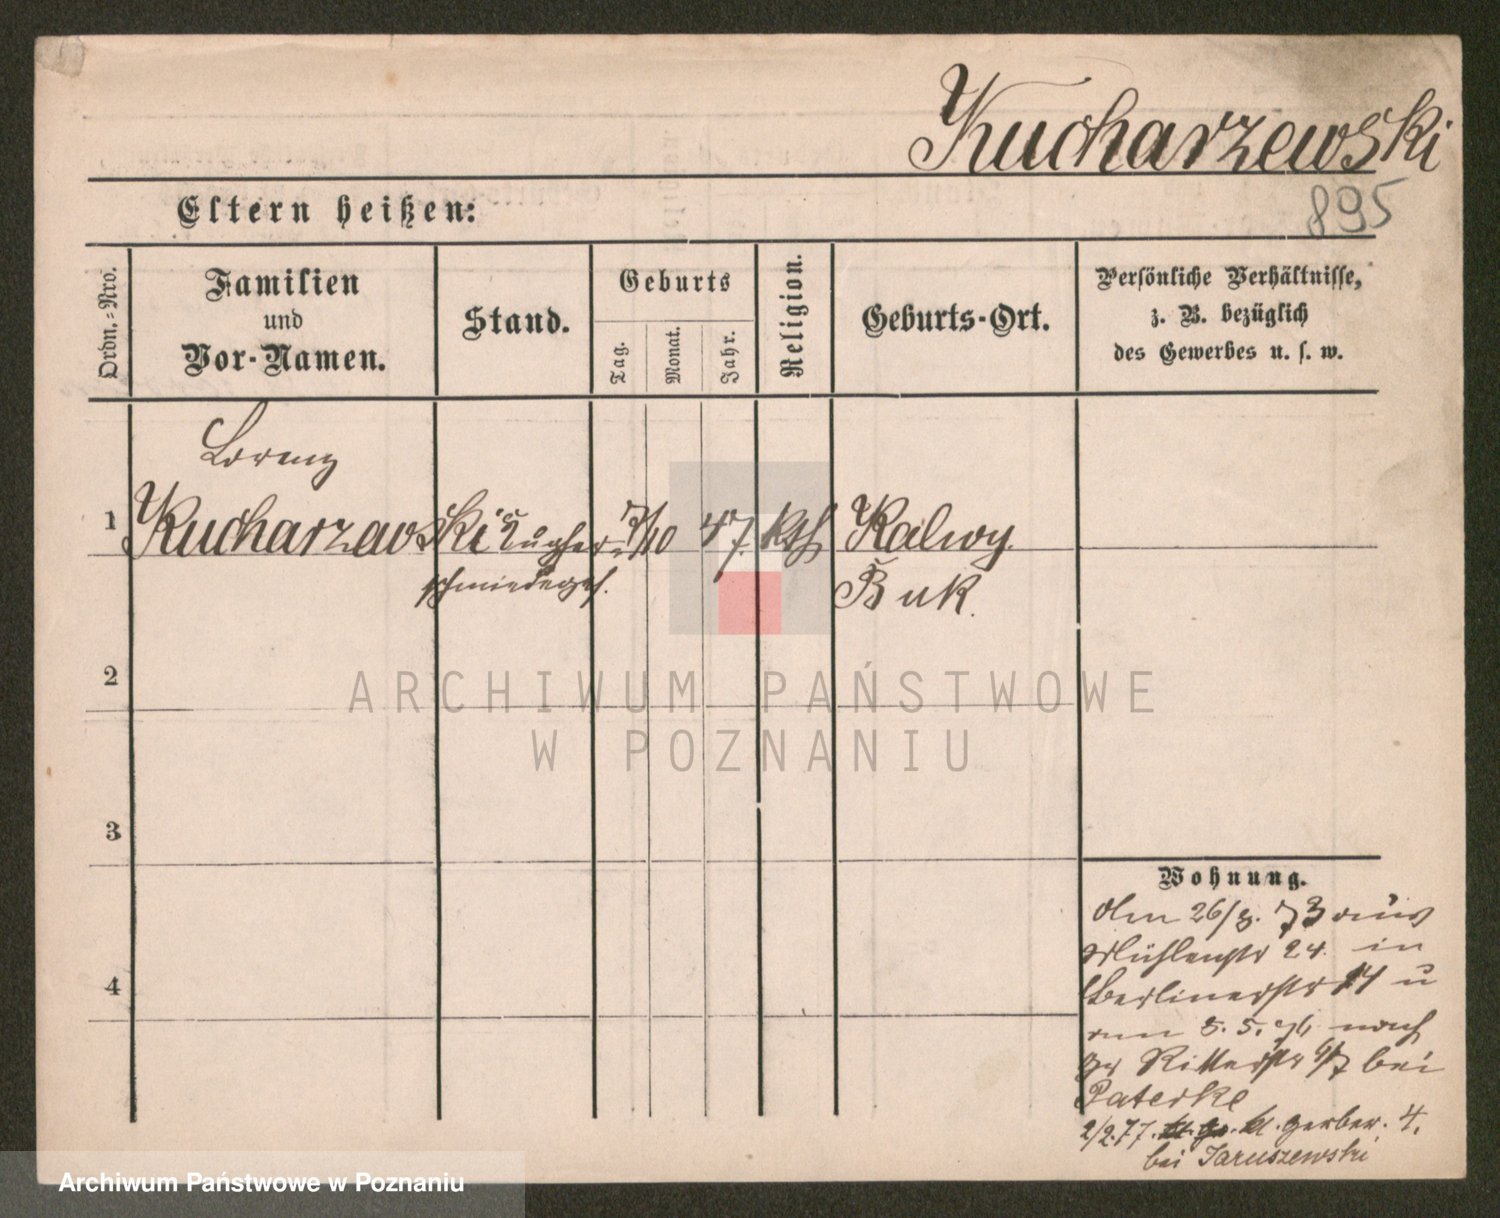 Kucharzewski
895
Eltern heißen:
Ordn.-Nro.
Familien
und
Vor-Namen.
Stand.
Geburts
Tag.
Monat.
Jahr.
Religion.
Geburts-Ort.
Persönliche Verhältnisse,
z. B. bezüglich
des Gewerbes u. s. w.
Lorenz
1 Kucharzewski Kupfer- 7/10 47. kth Kalwy
schmiedeges. Buk.
2
ARCHIWUM PAŃSTWOWE
W POZNANIU
3
4
Wohnung.
Am 26/8. 73 aus
Mühlenstr 24. in
Berlinerstr 14 u
am 5. 5. 76 nach
gr Ritterstr bei
Paterke
2/2.77. kl. gerber. 4.
bei Jaruszewski
Archiwum Państwowe w Poznaniu